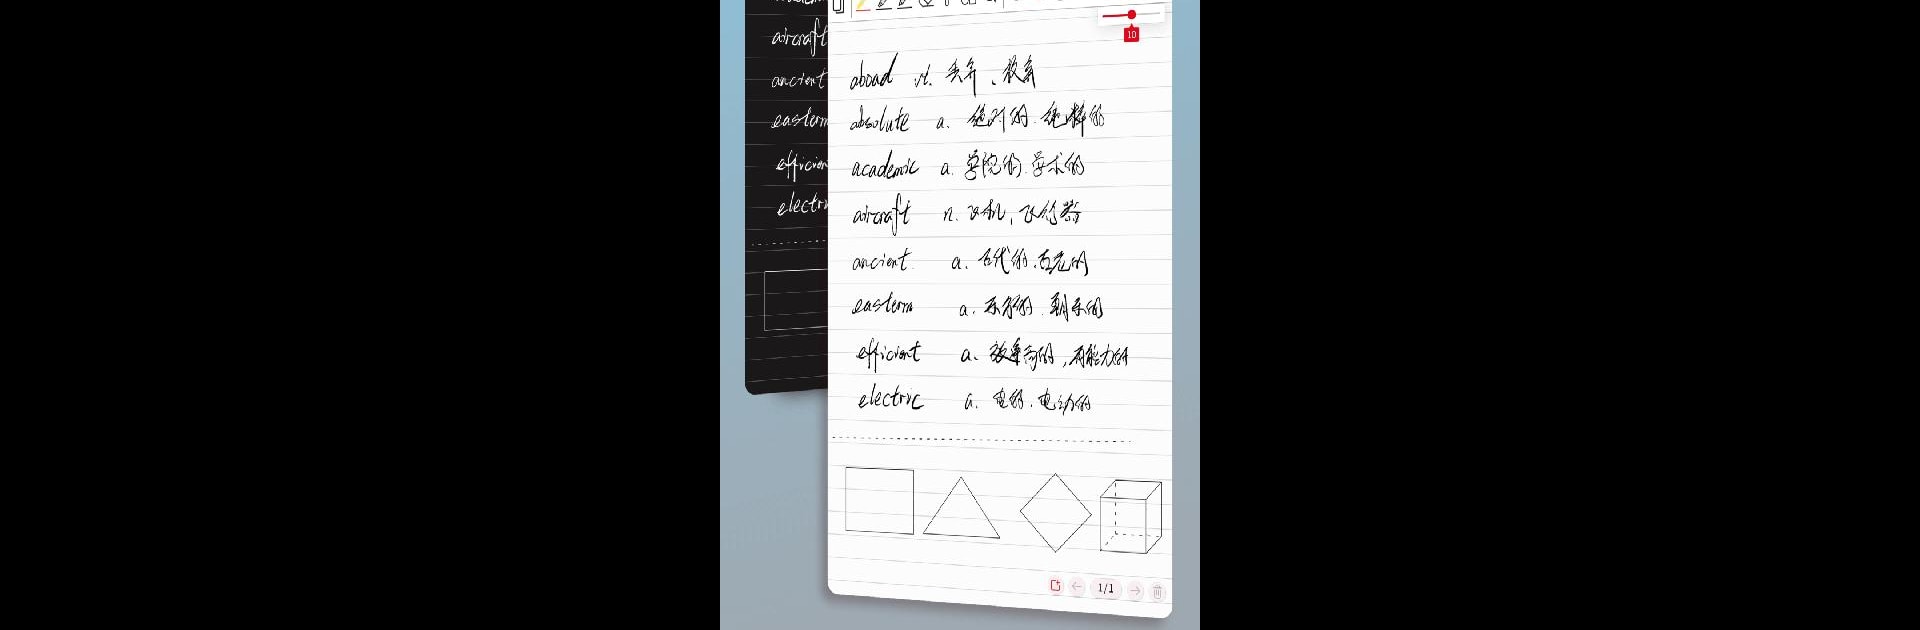 aircraft
ancient
eastern
efficien
electric
10
aboad vt. 丢弃、放弃
absolute a. 绝对的.纯粹的
academic a. 学院的.学术的
aircraft n. 飞机, 飞行器
ancient a. 古代的.古老的
eastern a. 东方的.朝东的
efficient a. 效率高的,有能力的
electric a. 电的.电动的
1/1